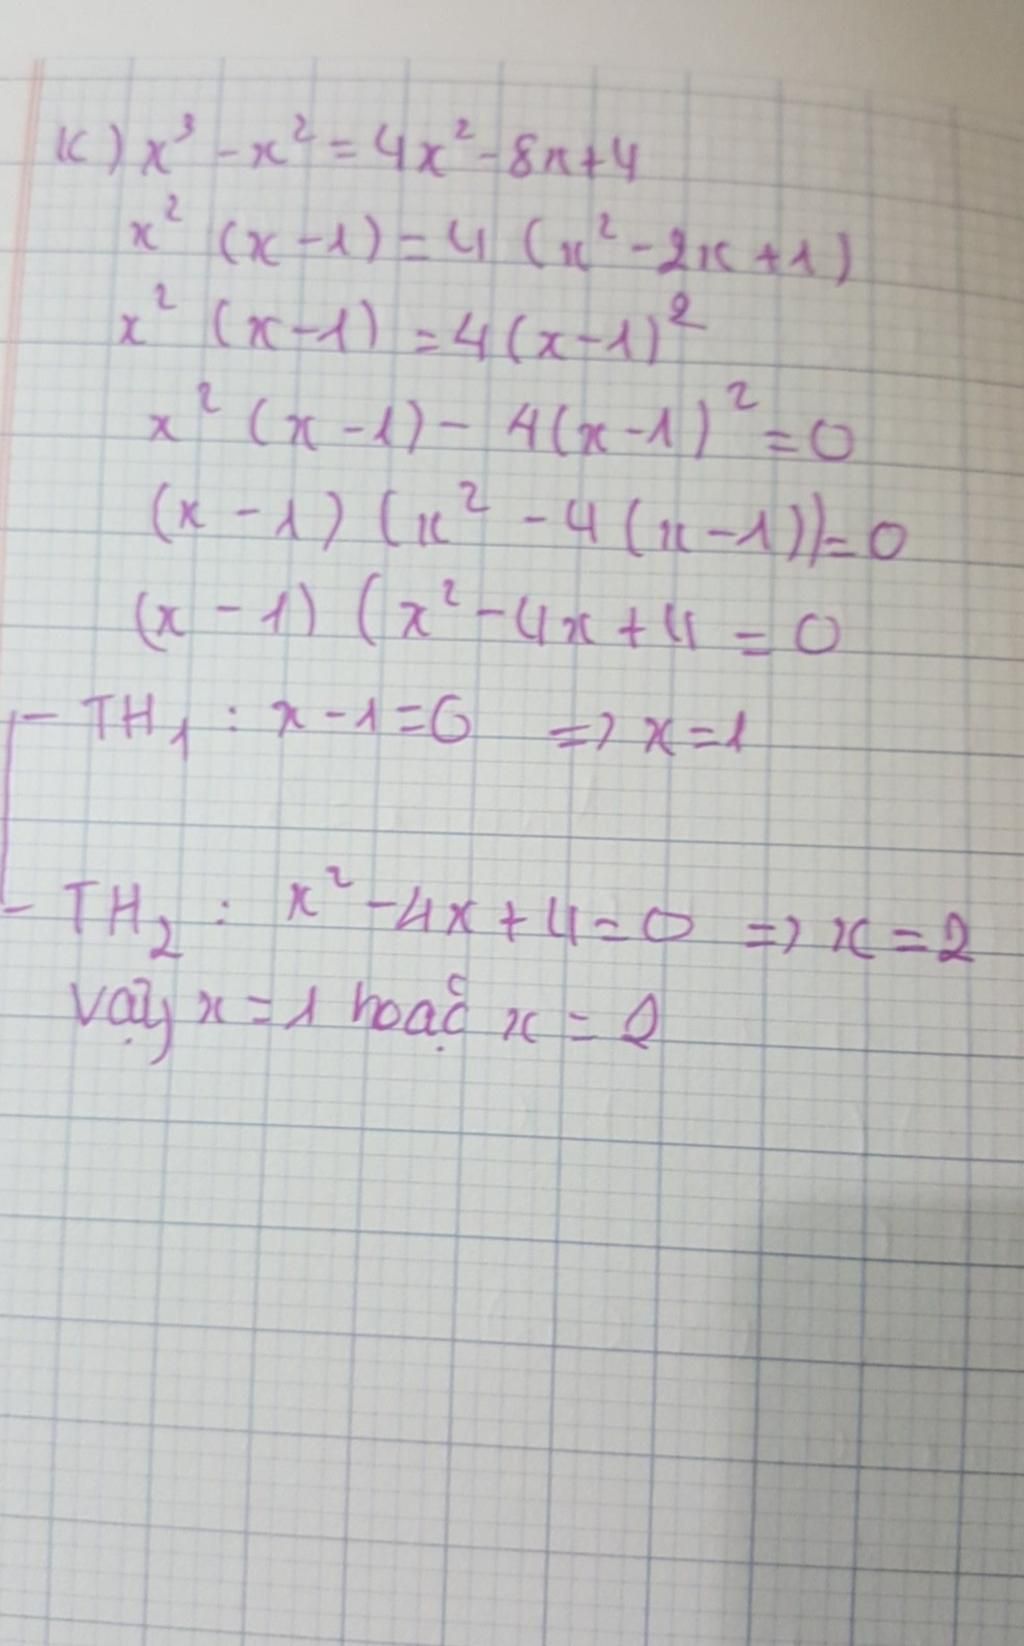 k) x³ - x² = 4x² - 8x + 4
x² (x - 1) = 4 (x² - 2x + 1)
x² (x - 1) = 4(x - 1)²
x² (x - 1) - 4(x - 1)² = 0
(x - 1) (x² - 4(x - 1)) = 0
(x - 1) (x² - 4x + 4 = 0
- TH₁ : x - 1 = 0 => x = 1
- TH₂ : x² - 4x + 4 = 0 => x = 2
Vậy x = 1 hoặc x = 2